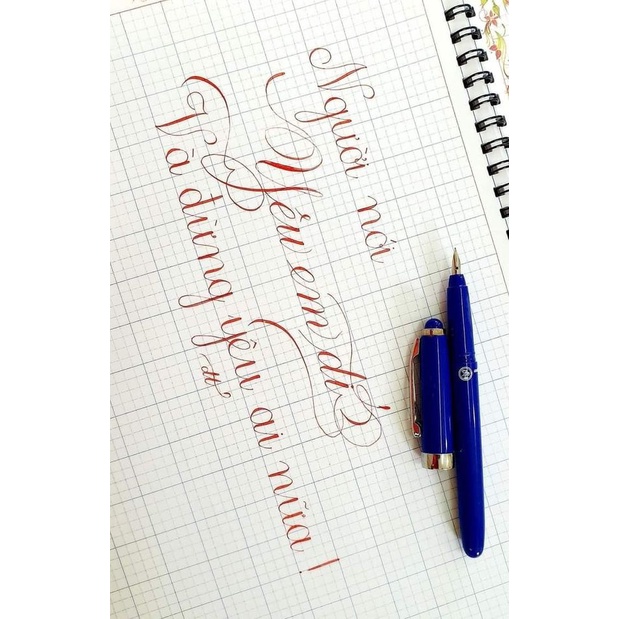 Người nói
Yêu em đi
Và đừng yêu ai nữa!